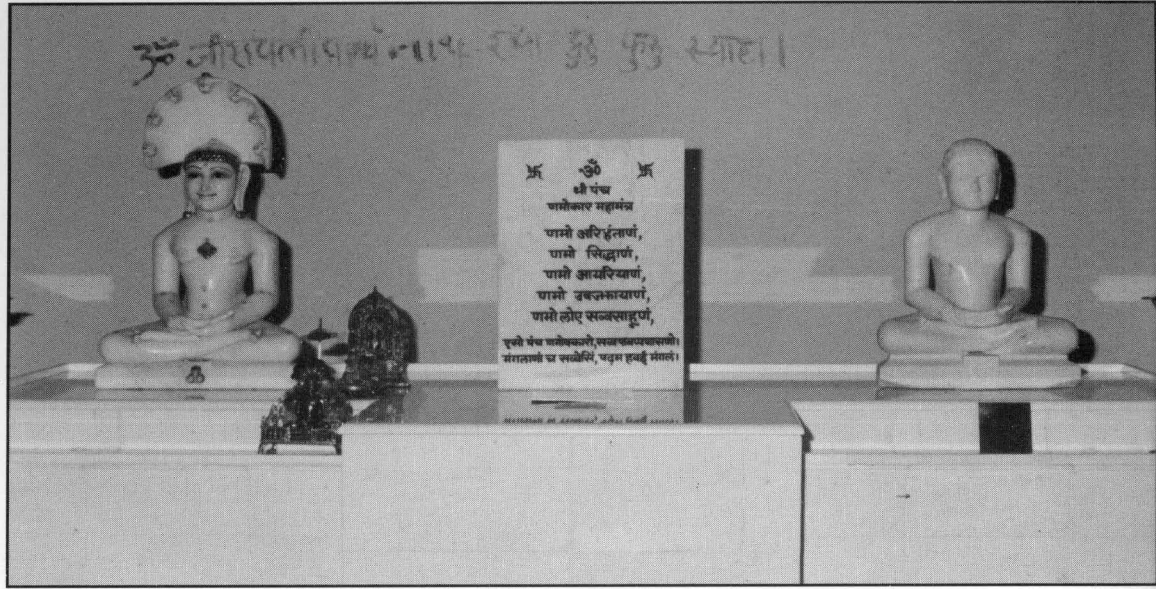 ॐ रक्ष कुरु कुरु स्वाहा।
卐 ॐ 卐
श्री पंच
णमोकार महामंत्र
णमो अरिहंताणं,
णमो सिद्धाणं,
णमो आयरियाणं,
णमो उवज्झायाणं,
णमो लोए सव्वसाहूणं,
एसो पंच णमोक्कारो, सव्वपावप्पणासणो।
मंगलाणं च सव्वेसिं, पढ़म हवई मंगलं।